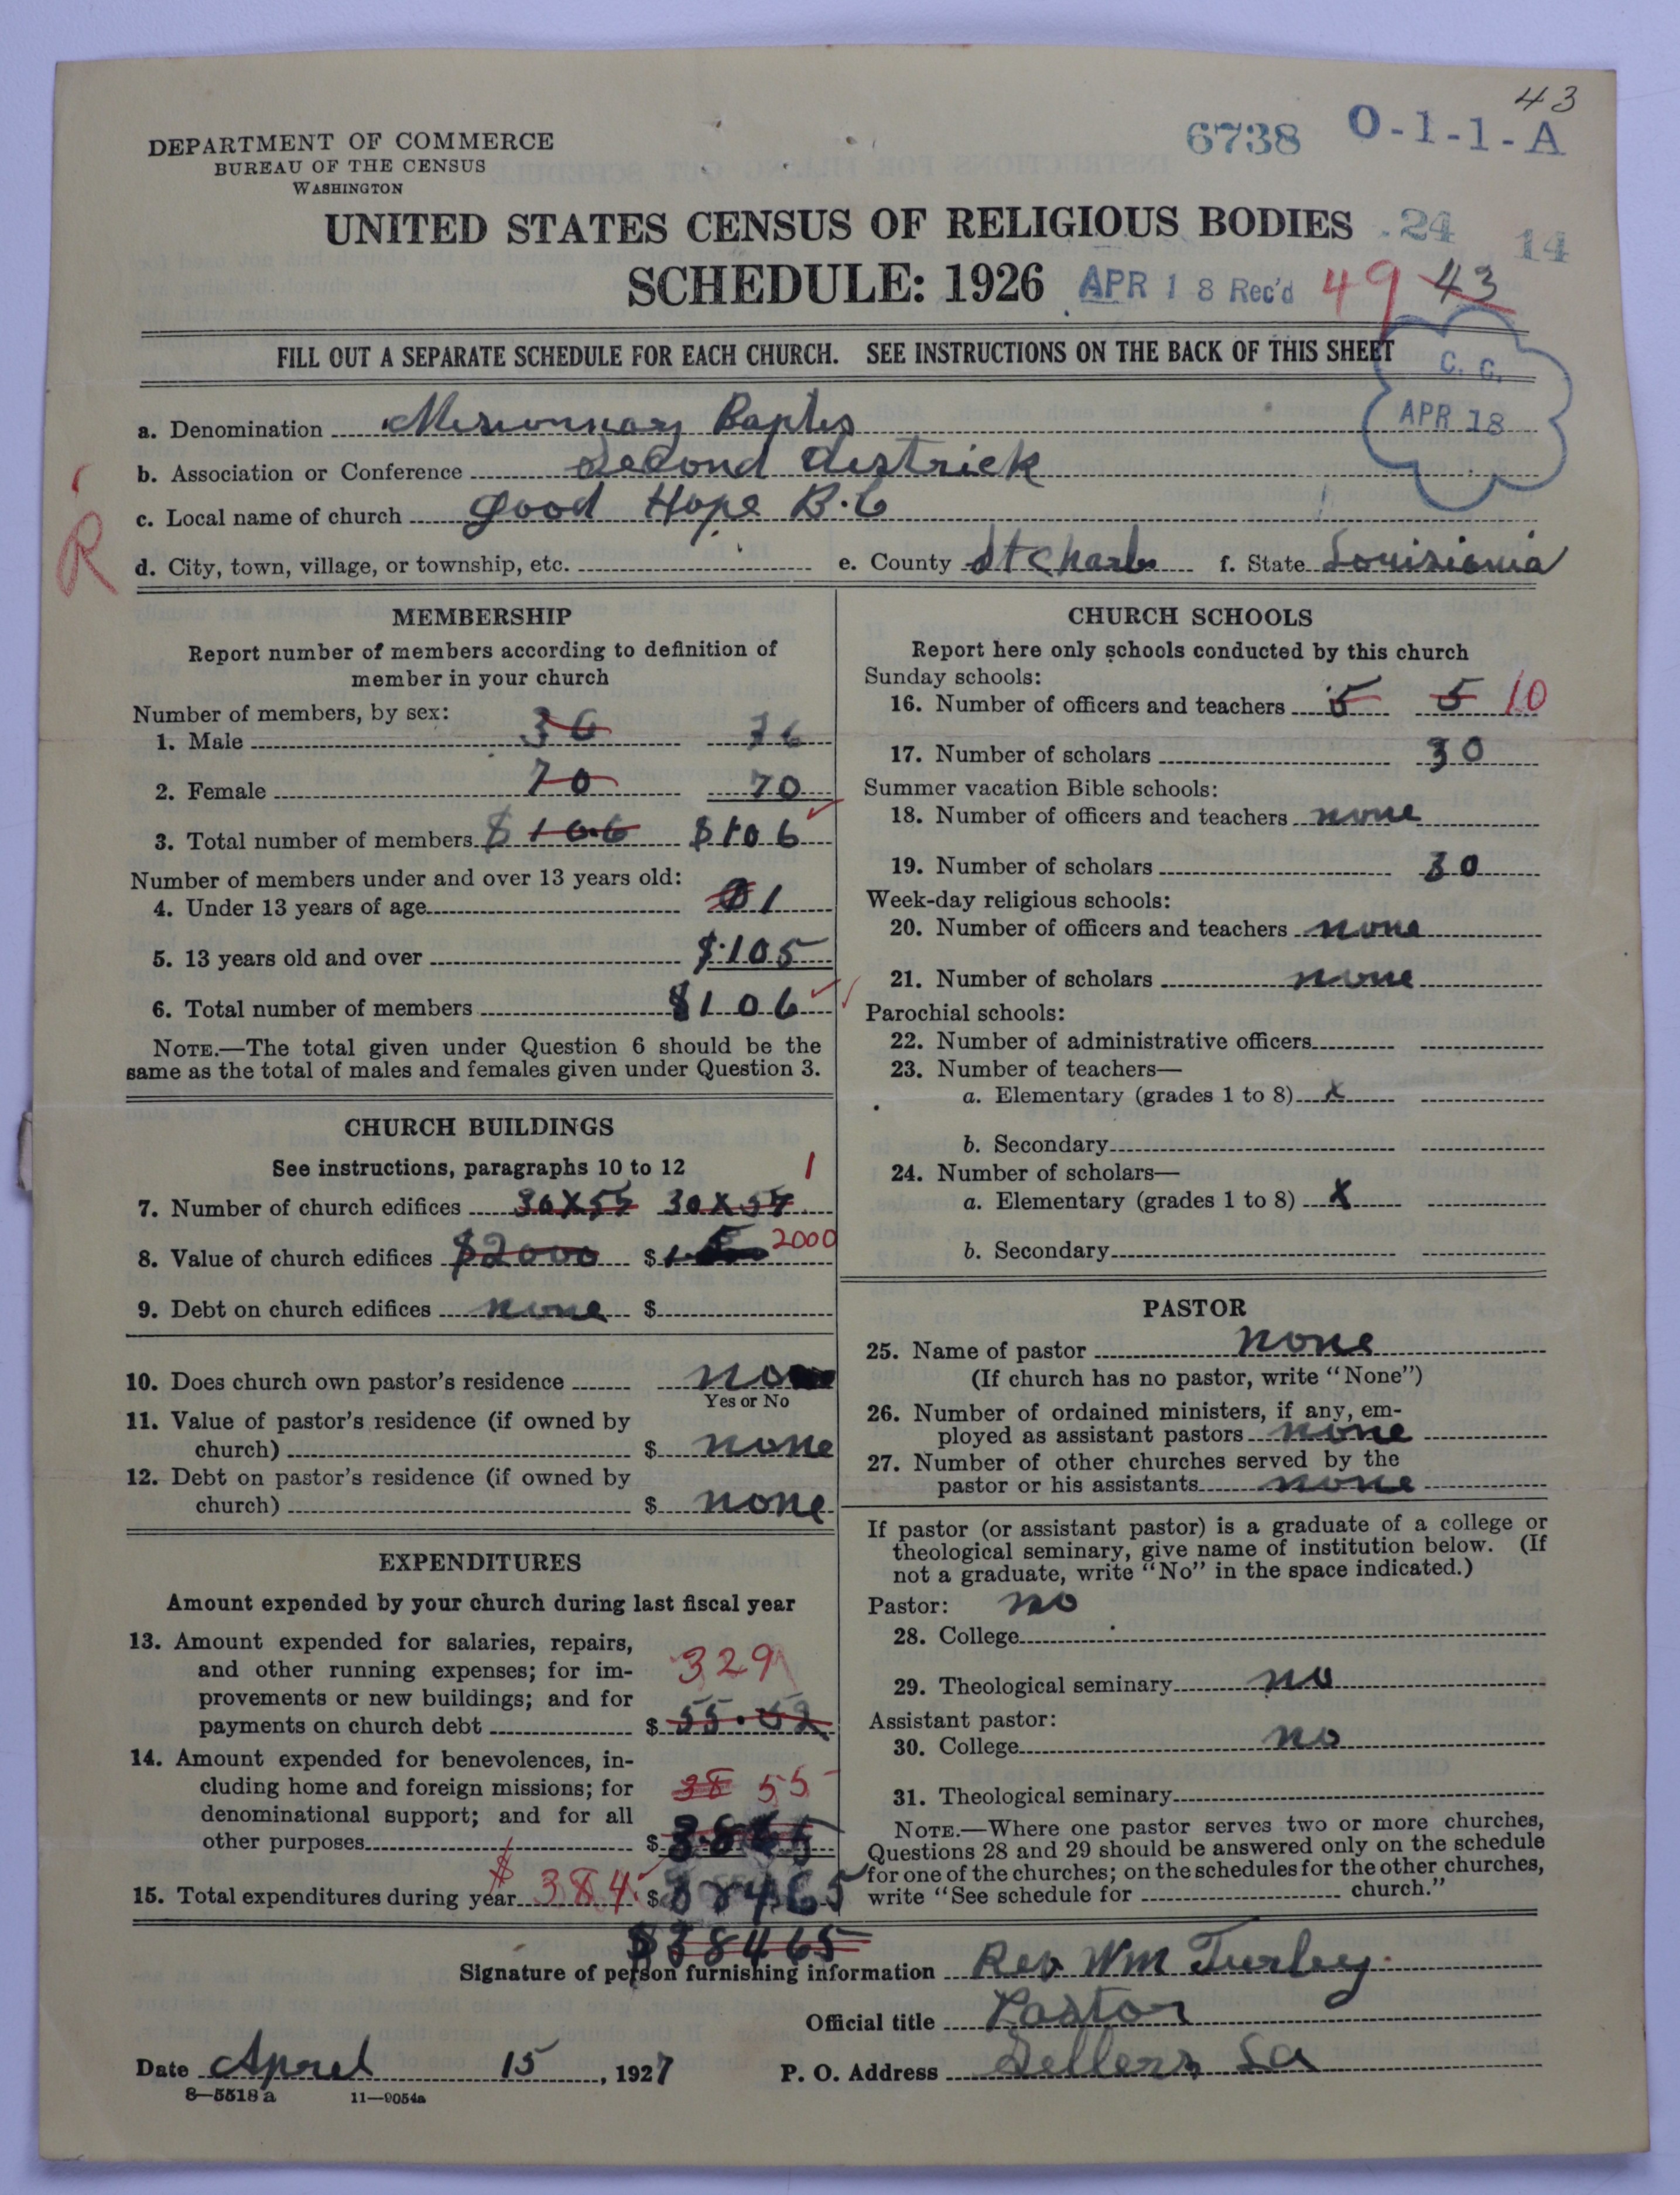 43
DEPARTMENT OF COMMERCE
BUREAU OF THE CENSUS
WASHINGTON
6738 O-1-1-A
UNITED STATES CENSUS OF RELIGIOUS BODIES 24 14
SCHEDULE: 1926 APR 18 Rec'd 49 43
FILL OUT A SEPARATE SCHEDULE FOR EACH CHURCH. SEE INSTRUCTIONS ON THE BACK OF THIS SHEET
C. C.
APR 18
a. Denomination Missionnary Baptis
b. Association or Conference Second districk
c. Local name of church good Hope B.C
R
d. City, town, village, or township, etc. e. County St Charls f. State Louisiania
MEMBERSHIP
Report number of members according to definition of
member in your church
Number of members, by sex:
1. Male 36 36
2. Female 70 70
3. Total number of members $106 $106
Number of members under and over 13 years old:
4. Under 13 years of age 1
5. 13 years old and over $.105
6. Total number of members $106
NOTE.—The total given under Question 6 should be the
same as the total of males and females given under Question 3.
CHURCH BUILDINGS
See instructions, paragraphs 10 to 12 1
7. Number of church edifices 30X55 30X55
8. Value of church edifices $2000 $ 2000
9. Debt on church edifices none $
10. Does church own pastor's residence no
Yes or No
11. Value of pastor's residence (if owned by
church) $ none
12. Debt on pastor's residence (if owned by
church) $ none
EXPENDITURES
Amount expended by your church during last fiscal year
13. Amount expended for salaries, repairs,
and other running expenses; for im-
provements or new buildings; and for
payments on church debt $ 55.52
329
14. Amount expended for benevolences, in-
cluding home and foreign missions; for
denominational support; and for all
other purposes $
38 55
15. Total expenditures during year $384 $38465
$38465
CHURCH SCHOOLS
Report here only schools conducted by this church
Sunday schools:
16. Number of officers and teachers 5 5 10
17. Number of scholars 30
Summer vacation Bible schools:
18. Number of officers and teachers none
19. Number of scholars 30
Week-day religious schools:
20. Number of officers and teachers none
21. Number of scholars none
Parochial schools:
22. Number of administrative officers
23. Number of teachers—
a. Elementary (grades 1 to 8) x
b. Secondary
24. Number of scholars—
a. Elementary (grades 1 to 8) x
b. Secondary
PASTOR
25. Name of pastor none
(If church has no pastor, write "None")
26. Number of ordained ministers, if any, em-
ployed as assistant pastors none
27. Number of other churches served by the
pastor or his assistants none
If pastor (or assistant pastor) is a graduate of a college or
theological seminary, give name of institution below. (If
not a graduate, write "No" in the space indicated.)
Pastor: no
28. College
29. Theological seminary no
Assistant pastor:
30. College no
31. Theological seminary
NOTE.—Where one pastor serves two or more churches,
Questions 28 and 29 should be answered only on the schedule
for one of the churches; on the schedules for the other churches,
write "See schedule for church."
Signature of person furnishing information Rev Wm Turley
Official title Pastor
Date Aprel 15, 1927 P. O. Address Sellers La
8—5518 a 11—9054a